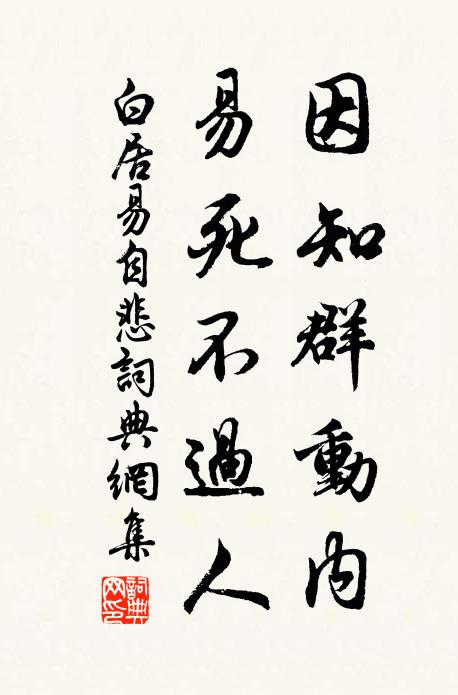 因知群動內
易死不過人
白居易自悲詞典網集
詞典网印